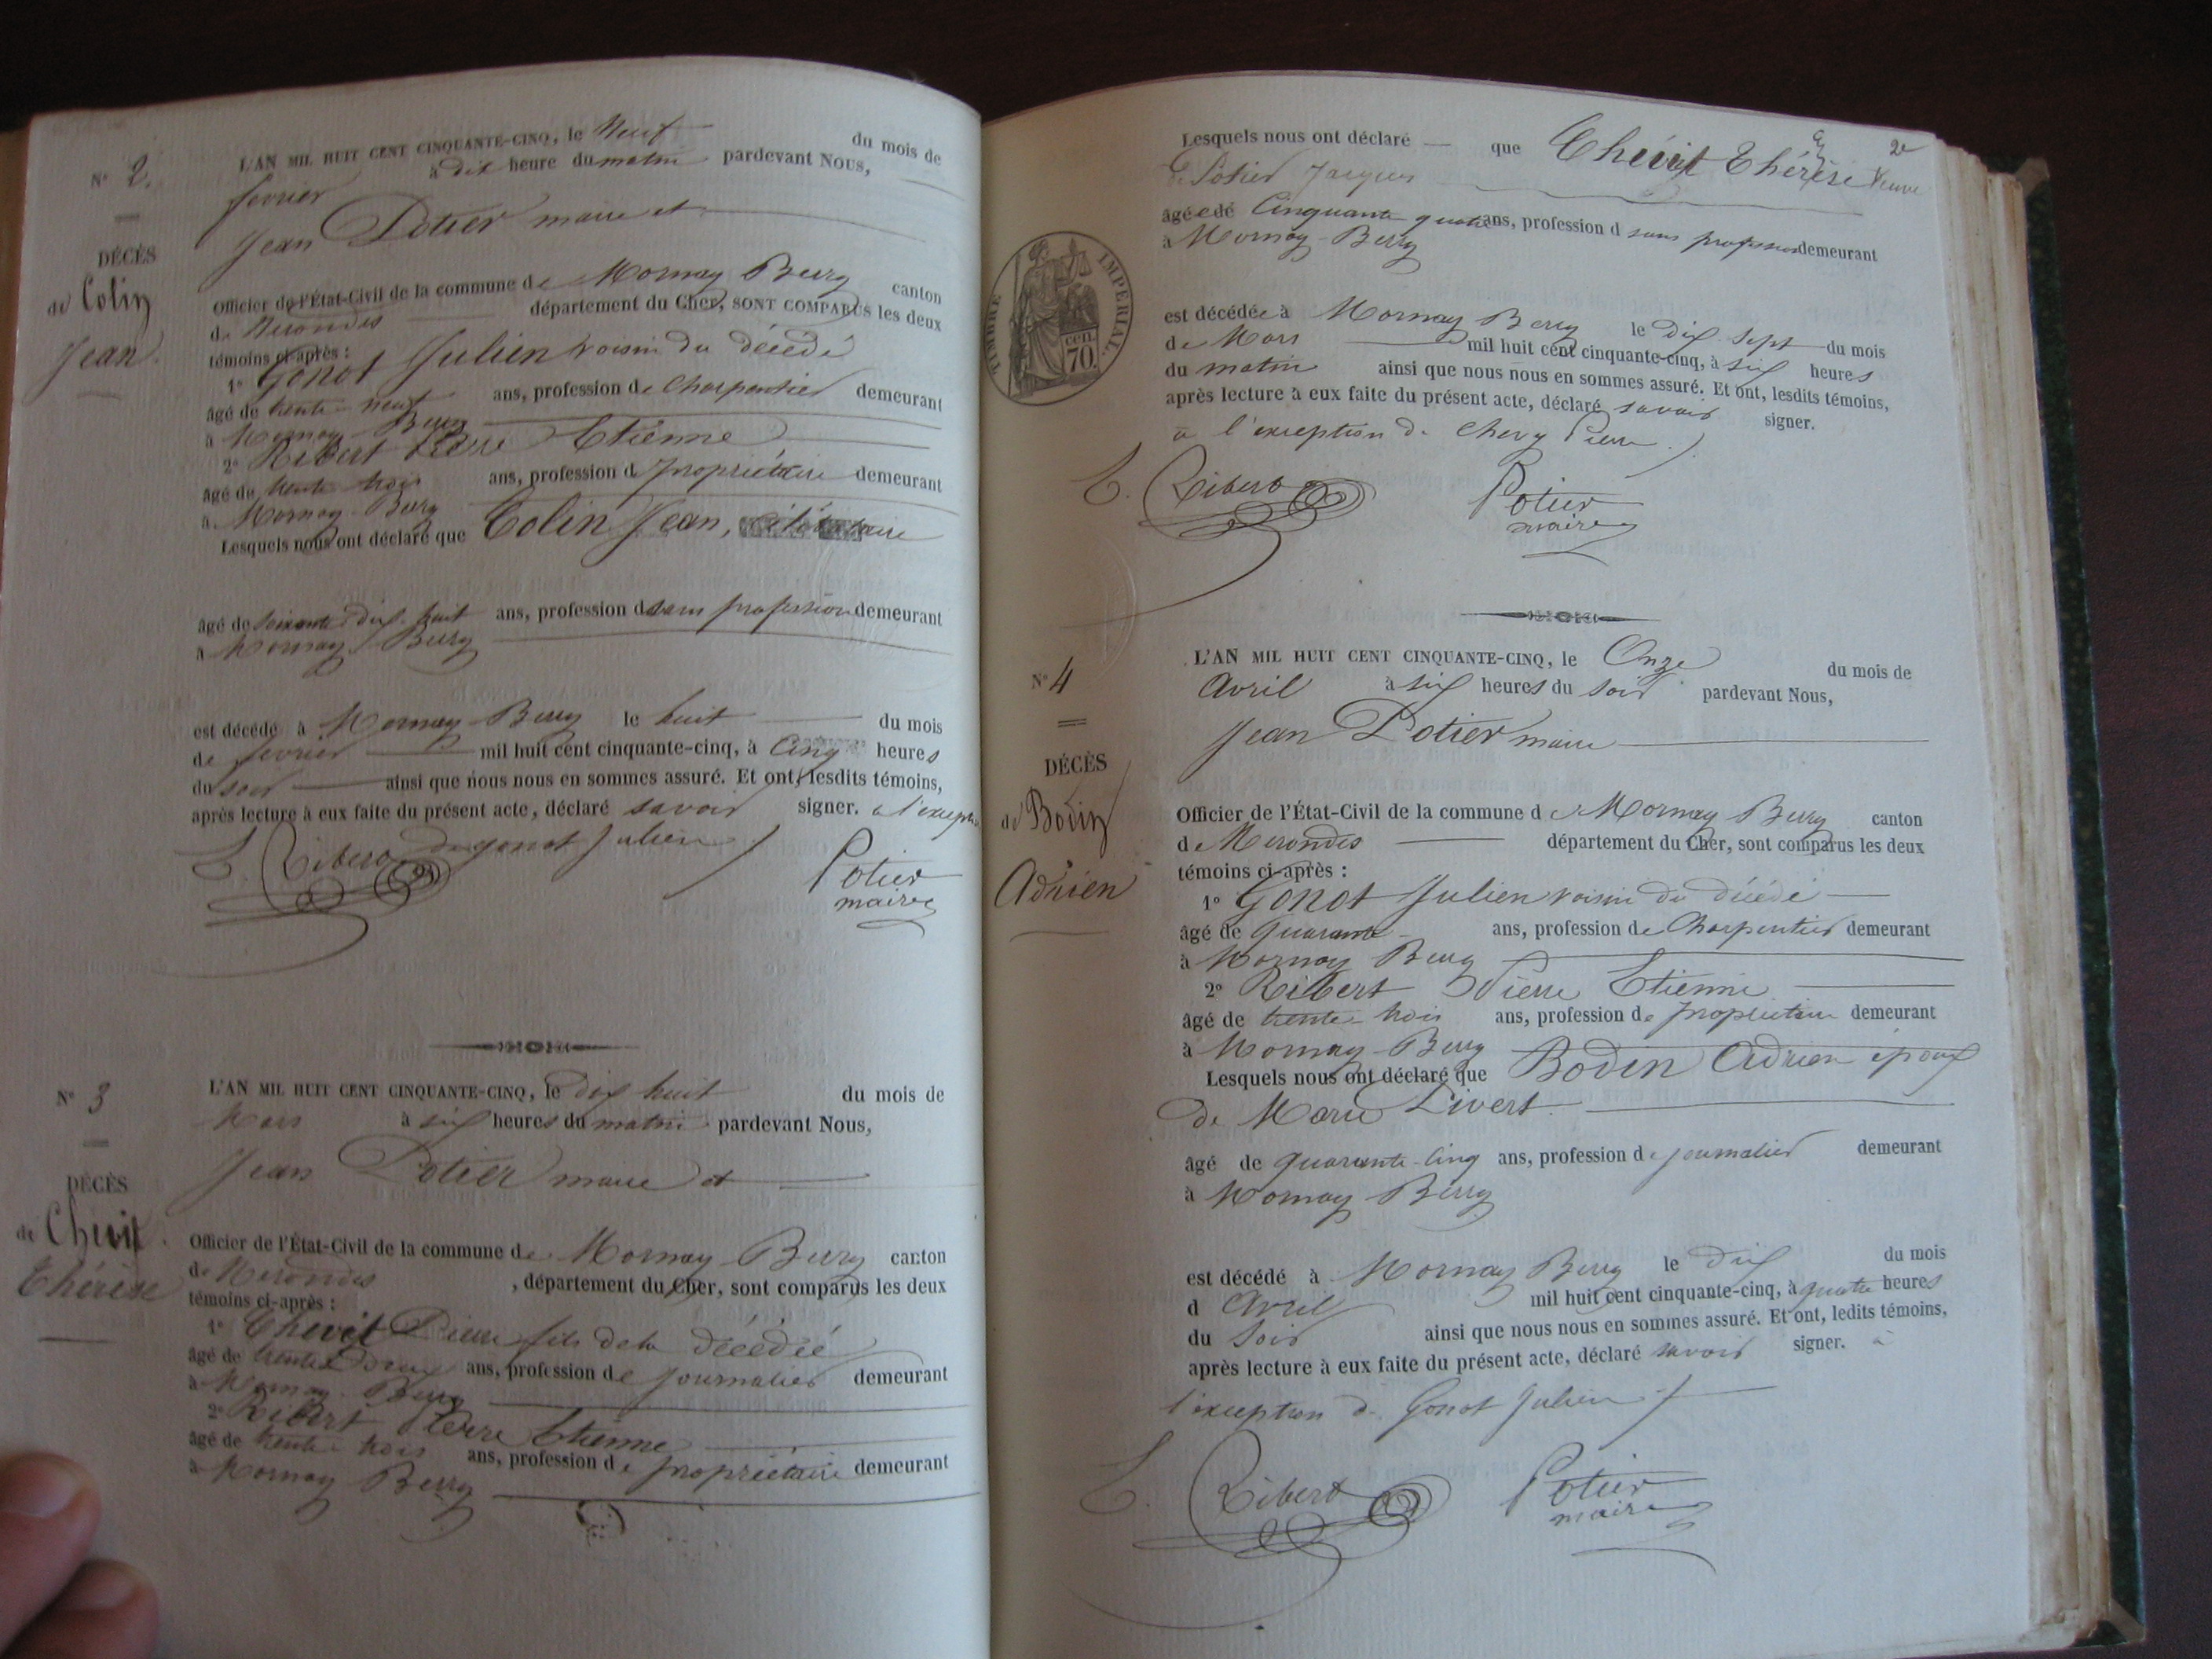 N° 2.
DÉCÈS
de Colin
Jean
L'AN MIL HUIT CENT CINQUANTE-CINQ, le Neuf du mois de
fevrier à dix heure du matin pardevant Nous,
Jean Potier maire et
Officier de l'État-Civil de la commune de Mornay Berry canton
de Nerondes département du Cher, SONT COMPARUS les deux
témoins ci-après :
1° Gonot Julien voisin du décédé
âgé de trente neuf ans, profession de Charpentier demeurant
à Mornay-Berry
2° Ribert Pierre Etienne
âgé de trente trois ans, profession d propriétaire demeurant
à Mornay-Berry
Lesquels nous ont déclaré que Colin Jean,
âgé de soixante dix-huit ans, profession d sans profession demeurant
à Mornay Berry
est décédé à Mornay-Berry le huit du mois
de fevrier mil huit cent cinquante-cinq, à Cinq heures
du soir ainsi que nous nous en sommes assuré. Et ont, lesdits témoins,
après lecture à eux faite du présent acte, déclaré savoir signer. a l'exception
de gonot Julien
E. Ribert Potier
maire
N° 3
DÉCÈS
de Chevit
Thérèse
L'AN MIL HUIT CENT CINQUANTE-CINQ, le dix huit du mois de
Mars à six heures du matin pardevant Nous,
Jean Potier maire et
Officier de l'État-Civil de la commune de Mornay-Berry canton
de Nerondes, département du Cher, sont comparus les deux
témoins ci-après :
1° Chevit Pierre fils de la décédée
âgé de trente deux ans, profession de journalier demeurant
à Mornay-Berry
2° Ribert Pierre Etienne
âgé de trente trois ans, profession de propriétaire demeurant
à Mornay Berry
2e
Lesquels nous ont déclaré que Chévit Thérèse Veuve
de Potier Jacques
âgée de Cinquante quatre ans, profession d sans profession demeurant
à Mornay-Berry
TIMBRE IMPÉRIAL.
cen.
70.
est décédée à Mornay Berry le dix sept du mois
de Mars mil huit cent cinquante-cinq, à six heures
du matin ainsi que nous nous en sommes assuré. Et ont, lesdits témoins,
après lecture à eux faite du présent acte, déclaré savoir signer.
à l'exception de Chevy Pierre
E. Ribert Potier
maire
N° 4
DÉCÈS
de Bodin
Adrien
L'AN MIL HUIT CENT CINQUANTE-CINQ, le Onze du mois de
Avril à six heures du soir pardevant Nous,
Jean Potier maire
Officier de l'État-Civil de la commune de Mornay Berry canton
de Nerondes département du Cher, sont comparus les deux
témoins ci-après :
1° Gonot Julien voisin du décédé
âgé de quarante ans, profession de Charpentier demeurant
à Mornay Berry
2° Ribert Pierre Etienne
âgé de trente trois ans, profession de propriétaire demeurant
à Mornay-Berry
Lesquels nous ont déclaré que Bodin Adrien époux
de Marie Livert
âgé de quarante-cinq ans, profession de journalier demeurant
à Mornay Berry
est décédé à Mornay Berry le dix du mois
d Avril mil huit cent cinquante-cinq, à quatre heures
du soir ainsi que nous nous en sommes assuré. Et ont, ledits témoins,
après lecture à eux faite du présent acte, déclaré savoir signer. à
l'exception de Gonot Julien
E. Ribert Potier
maire